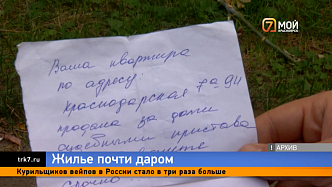 7 МОЙ
КРАСНОЯРСК
Ваша квартира
по адресу:
Краснодарская 7а 94
продана за долги
судебными пристава
срочно
АРХИВ
Жилье почти даром
trk7.ru
Курильщиков вейпов в России стало в три раза больше